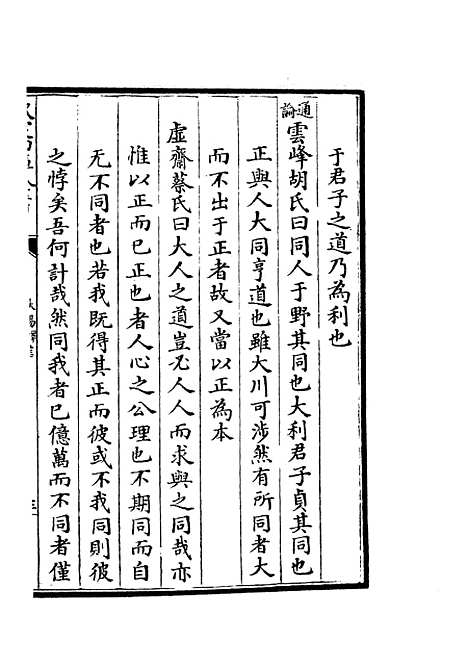 于君子之道乃為利也
通論雲峰胡氏曰同人于野其同也大利君子貞其同也
正與人大同亨道也雖大川可涉然有所同者大
而不出于正者故又當以正為本
虛齋蔡氏曰大人之道豈必人人而求與之同哉亦
惟以正而已正也者人心之公理也不期同而自
无不同者也若我既得其正而彼或不我同則彼
之悖矣吾何計哉然同我者已億萬而不同者僅